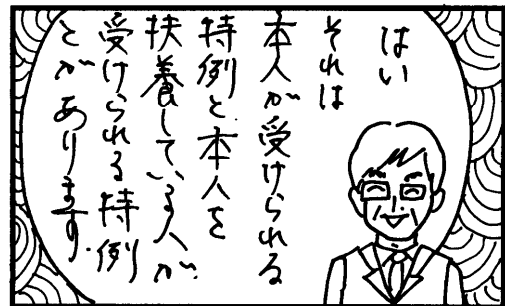 はい
それは
本人が受けられる
特例と本人を
扶養している人が
受けられる特例
とがあります。